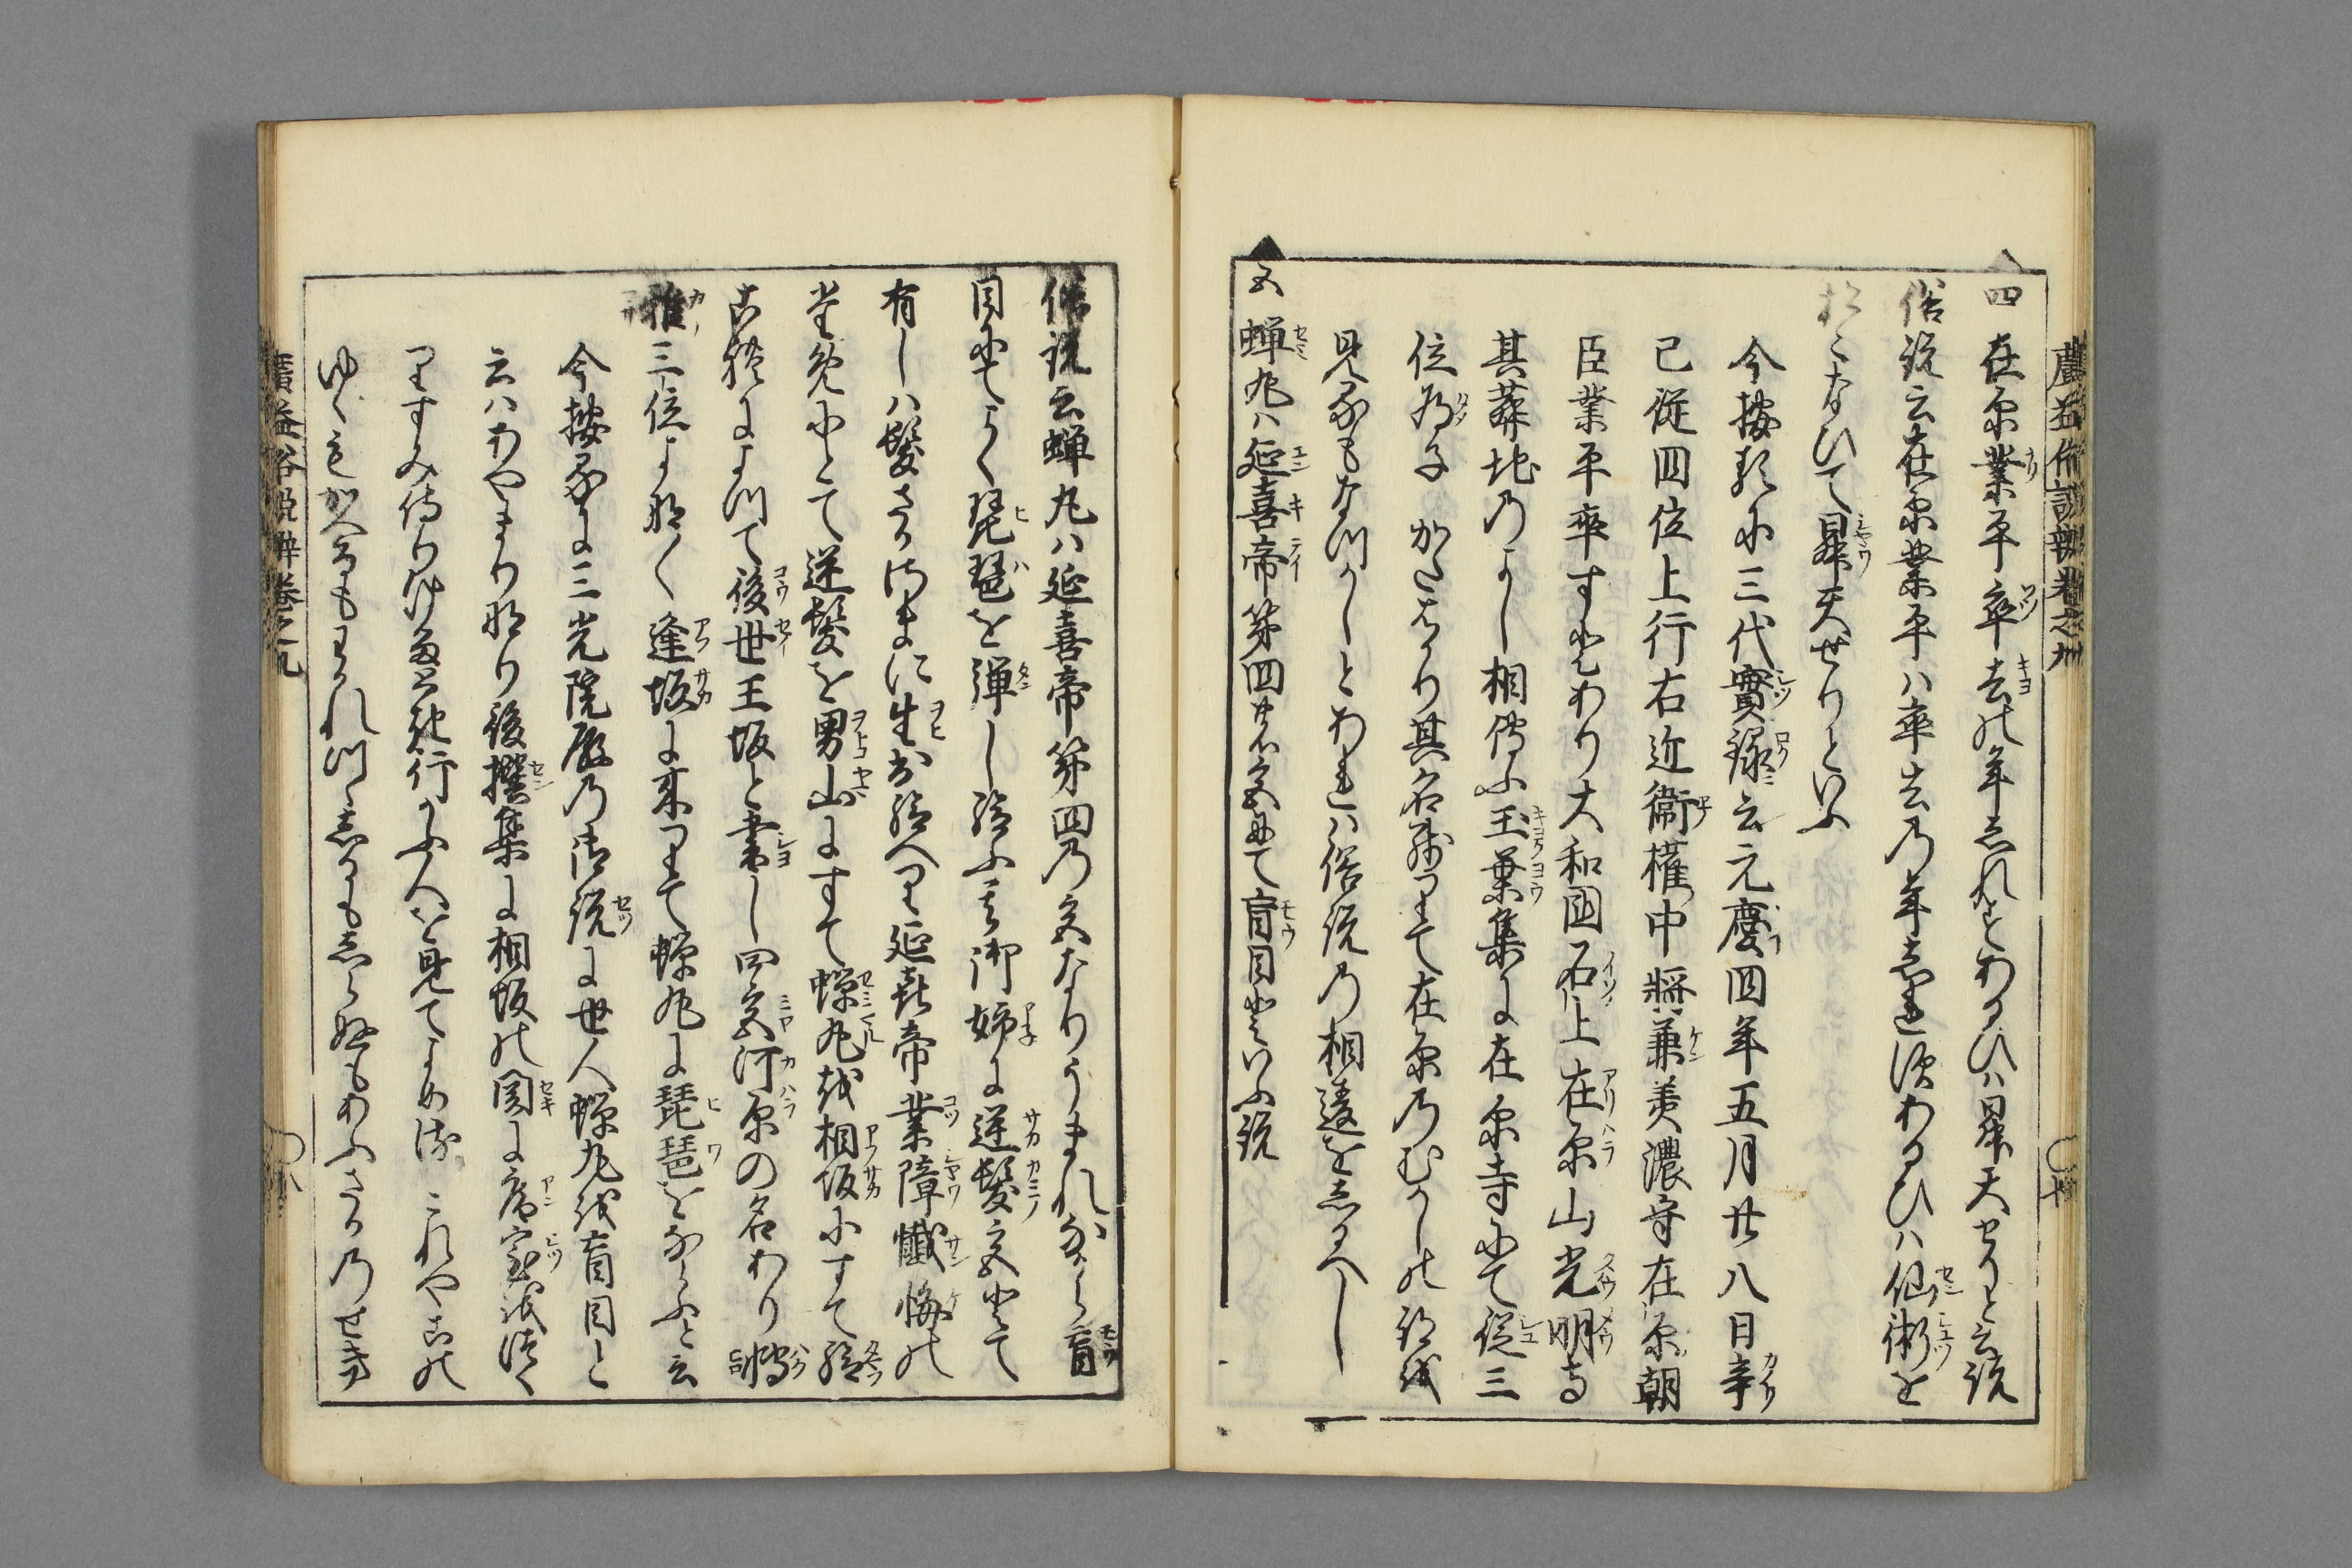 廣益俗説辨卷之九
四 在原業平卒去の年しれずあるひハ昇天せりと云説
俗説云在原業平ハ卒去乃年しれ須あるひハ仙術を
おこなひて昇天せりといふ
今按るに三代實録ニ云元慶四年五月廿八日辛
已従四位上行右近衛權中将兼美濃守在原朝
臣業平卒すとあり大和國石上在原山光明寺
其葬地のよし相傳ふ玉葉集に在原寺にて從三
位為子かたはかり其名残りて在原乃むかしの跡を
見るもなつかしとあれハ俗説乃相違を志るへし
五 蝉丸ハ延喜帝第四の宮にて盲目といふ説
俗説云蝉丸ハ延喜帝第四乃宮なりうまれながら盲
目にてよく琵琶を弾し給ふ其御姉に逆髪宮とて
有しハ髪さかさまに生出給へり延喜帝業障懺悔の
ためにとて逆髪を男山にすて蝉丸を相坂にすて給
によつて後世王坂と書し四宮河原の名あり博
雅三位よな〱逢坂に来りて蝉丸に琵琶をならふと云
今按るに三光院殿乃御説に世人蝉丸を盲目と
云ハあやまりなり後撰集に相坂の関に庵室を作
りすみ侍りけるに行かふ人を見てよめる これやこの
ゆくもかへるもわかれつゝしるもしらぬもあふさかのせき
廣益俗説辨卷之九